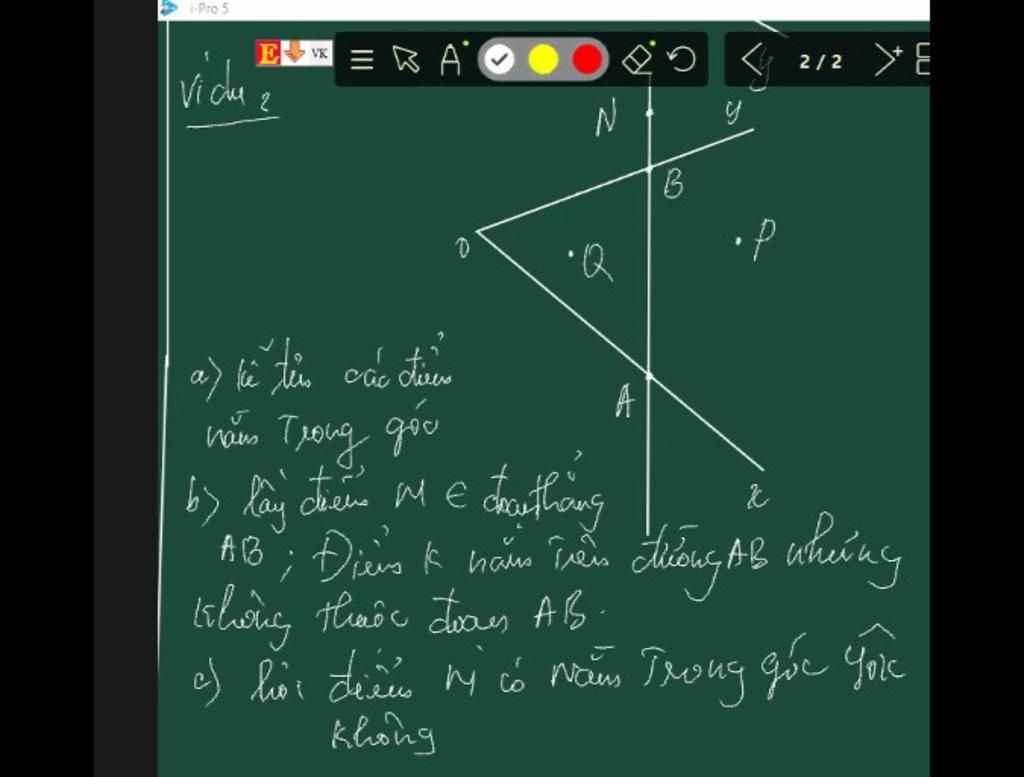 i-Pro 5
E VK A 2 / 2
Ví dụ 2
y
N
y
B
O
Q
P
A
x
a) kể tên các điểm
nằm Trong góc
b) lấy điểm M ∈ đoạn thẳng
AB ; Điểm K nằm Trên đường AB nhưng
không thuộc đoạn AB.
c) hỏi điểm M có nằm Trong góc yOx
không